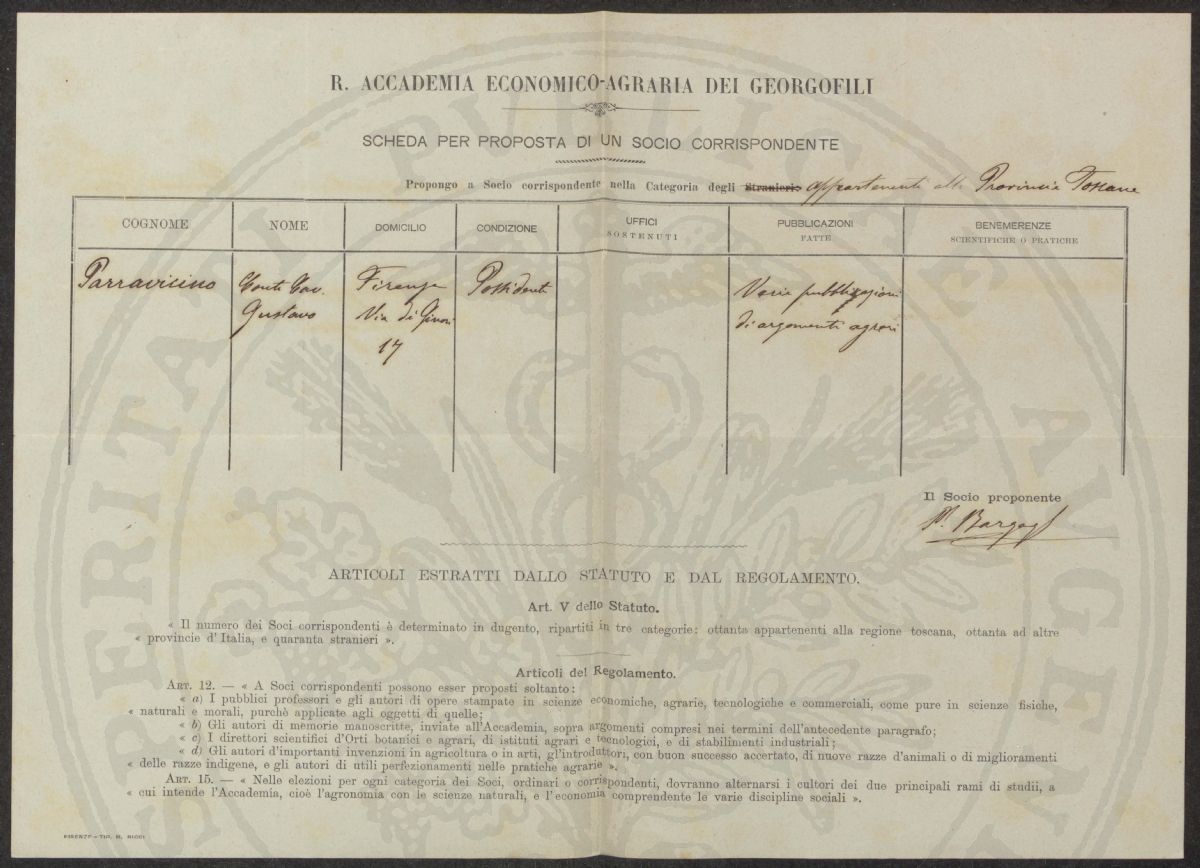 R. ACCADEMIA ECONOMICO-AGRARIA DEI GEORGOFILI
SCHEDA PER PROPOSTA DI UN SOCIO CORRISPONDENTE
Propongo a Socio corrispondente nella Categoria degli Stranieri appartenenti alle Provincie Toscane
COGNOME NOME DOMICILIO CONDIZIONE UFFICI SOSTENUTI PUBBLICAZIONI FATTE BENEMERENZE SCIENTIFICHE O PRATICHE
Parravicino Conte Cav. Firenze Possidente Varie pubblicazioni
Gustavo Via di Ginori di argomenti agrari
17
Il Socio proponente
P. Bargagli
ARTICOLI ESTRATTI DALLO STATUTO E DAL REGOLAMENTO.
Art. V dello Statuto.
« Il numero dei Soci corrispondenti è determinato in dugento, ripartiti in tre categorie: ottanta appartenenti alla regione toscana, ottanta ad altre
« provincie d'Italia, e quaranta stranieri ».
Articoli del Regolamento.
ART. 12. — « A Soci corrispondenti possono esser proposti soltanto:
« a) I pubblici professori e gli autori di opere stampate in scienze economiche, agrarie, tecnologiche e commerciali, come pure in scienze fisiche,
« naturali e morali, purchè applicate agli oggetti di quelle;
« b) Gli autori di memorie manoscritte, inviate all'Accademia, sopra argomenti compresi nei termini dell'antecedente paragrafo;
« c) I direttori scientifici d'Orti botanici e agrari, di istituti agrari e tecnologici, e di stabilimenti industriali;
« d) Gli autori d'importanti invenzioni in agricoltura o in arti, gl'introduttori, con buon successo accertato, di nuove razze d'animali o di miglioramenti
« delle razze indigene, e gli autori di utili perfezionamenti nelle pratiche agrarie ».
ART. 15. — « Nelle elezioni per ogni categoria dei Soci, ordinari o corrispondenti, dovranno alternarsi i cultori dei due principali rami di studii, a
« cui intende l'Accademia, cioè l'agronomia con le scienze naturali, e l'economia comprendente le varie discipline sociali ».
FIRENZE — TIP. M. RICCI